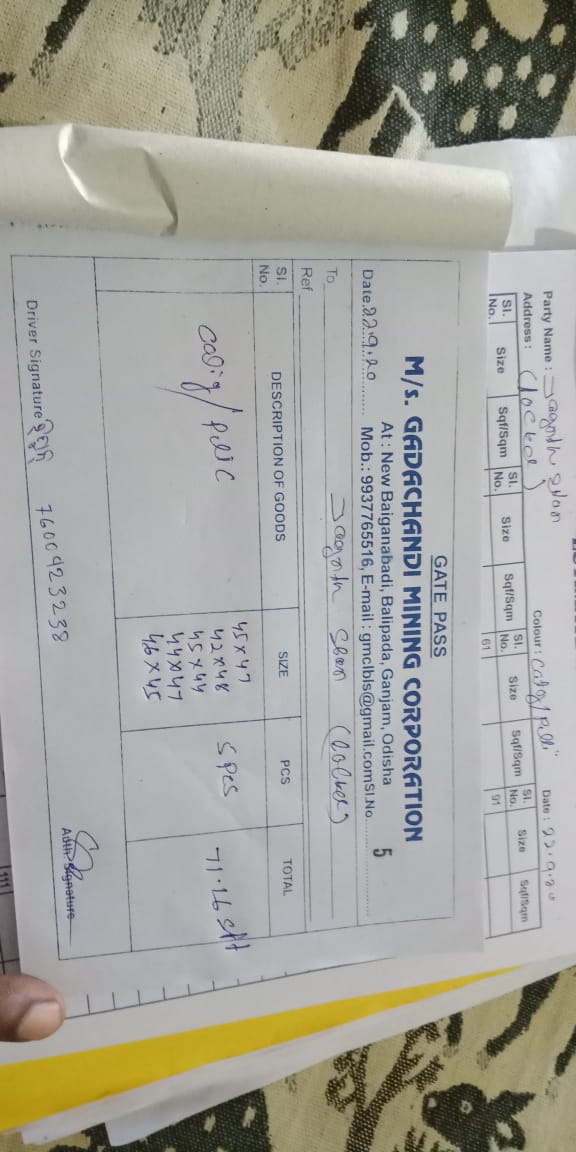 Party Name :
Address : (locker)
Colour : Calig/pelic
Date : 22.9.20
Sl. No. Size Sqf/Sqm Sl. No. Size Sqf/Sqm Sl. No. Size Sqf/Sqm Sl. No. Size Sqf/Sqm
61 91
GATE PASS
M/s. GADACHANDI MINING CORPORATION
At : New Baiganabadi, Balipada, Ganjam, Odisha
Date 22.9.20 Mob.: 9937765516, E-mail : gmclbls@gmail.com Sl.No. 5
To
Ref
Sl. No. DESCRIPTION OF GOODS SIZE PCS TOTAL
Calig/pelic 45x47 5 pcs 71.26 sft
42x48
45x44
44x47
46x45
Driver Signature 7600423238
Auth. Signature
111